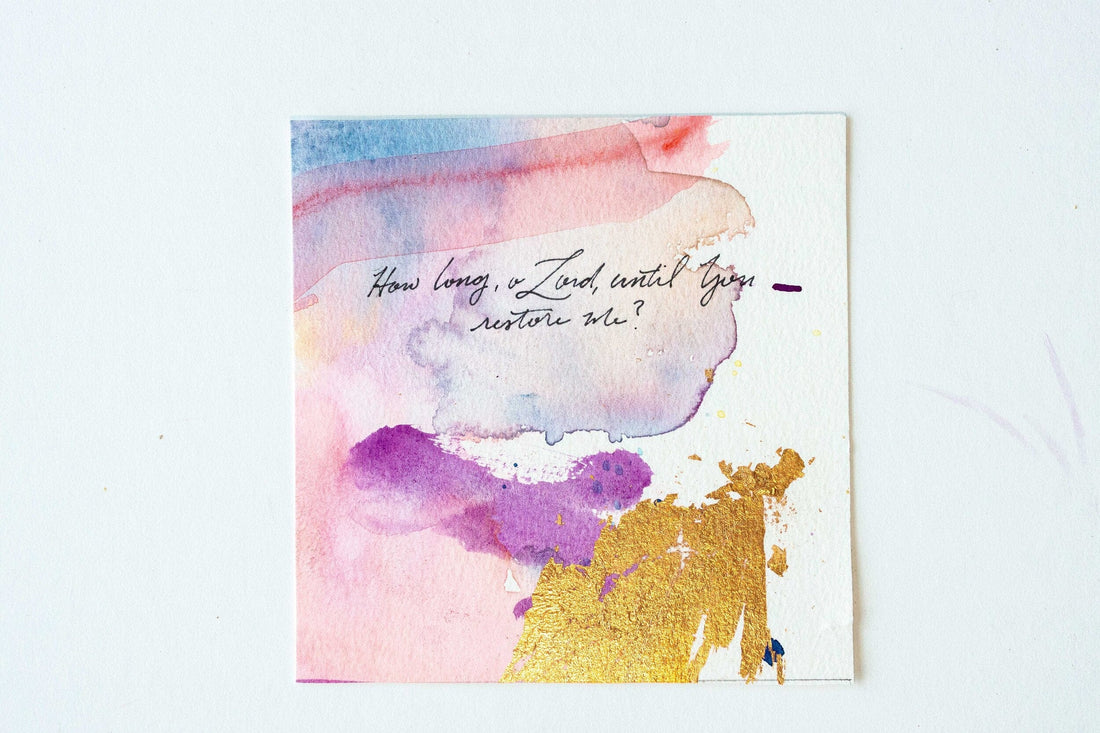 How long, o Lord, until You
restore me?